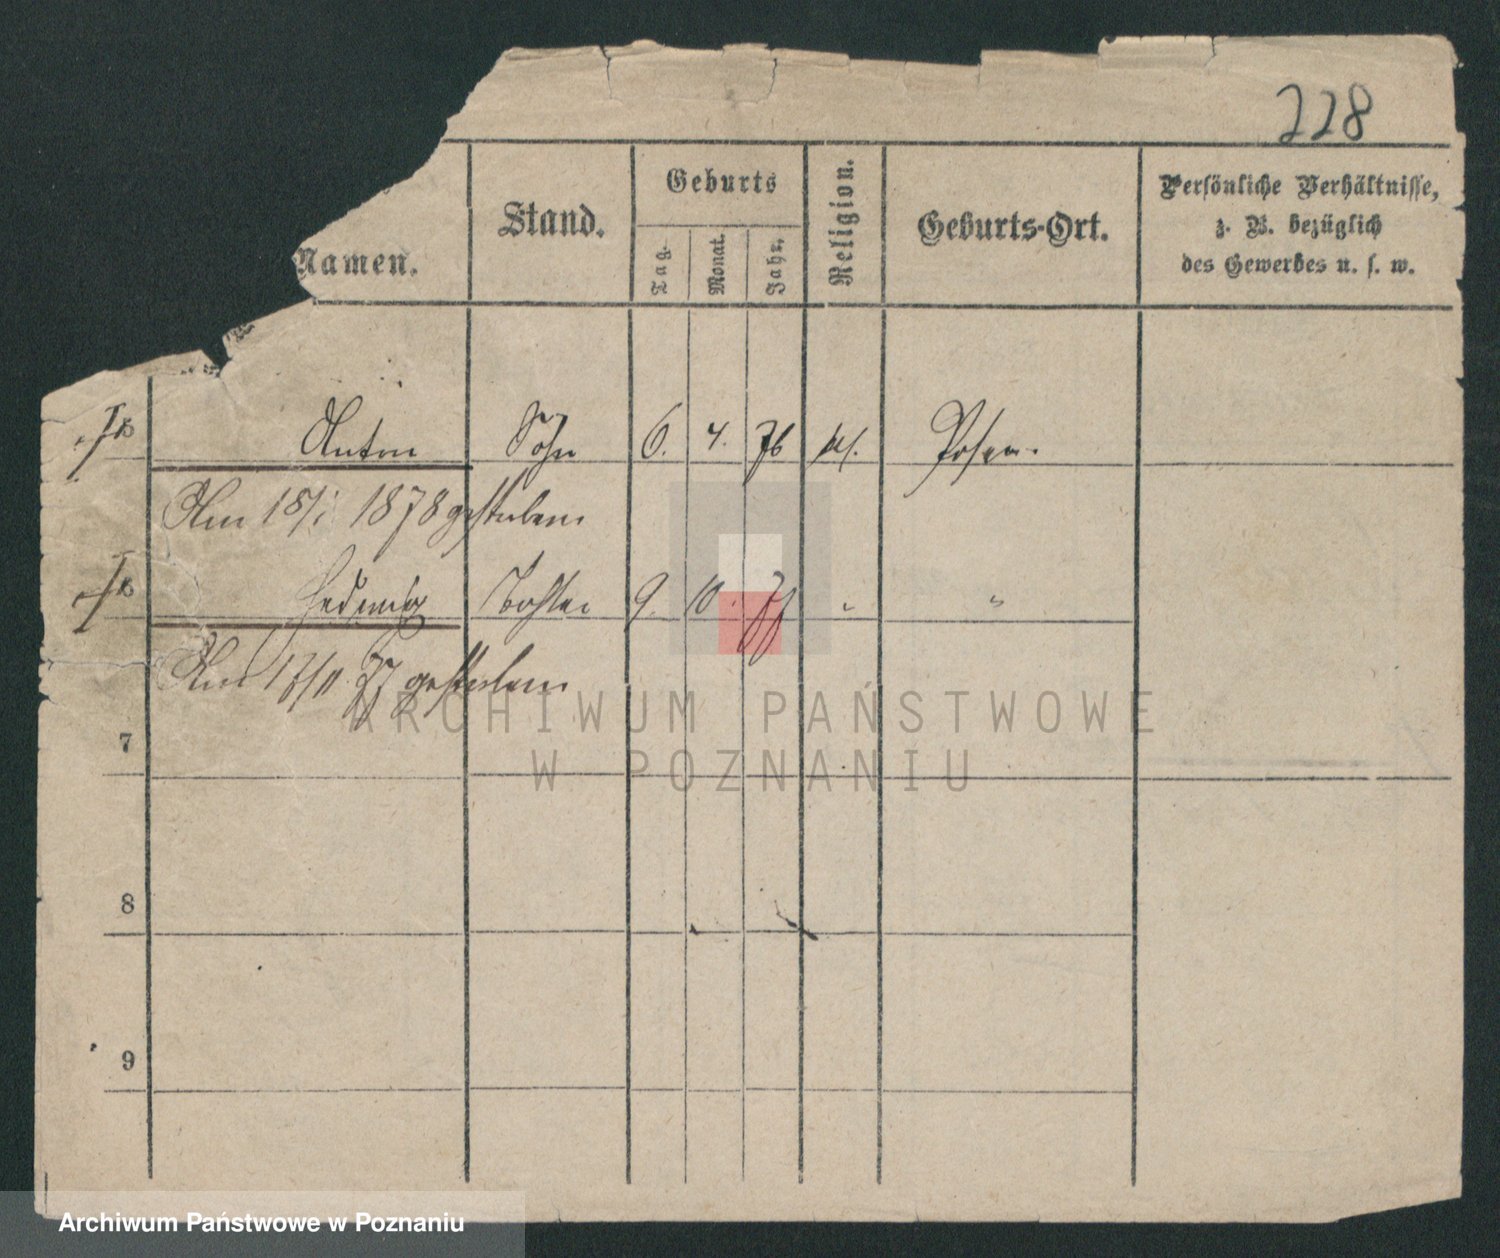 228
Namen.
Stand.
Geburts
Tag.
Monat.
Jahr.
Religion.
Geburts-Ort.
Persönliche Verhältnisse,
z. B. bezüglich
des Gewerbes u. s. w.
Anton Sohn 6. 4. 76 Posen.
Am 18/1 1878 gestorben
Hedwig Tochter 9. 10. 77 " "
Am 17/11 77 gestorben
7
8
9
ARCHIWUM PAŃSTWOWE
W POZNANIU
Archiwum Państwowe w Poznaniu